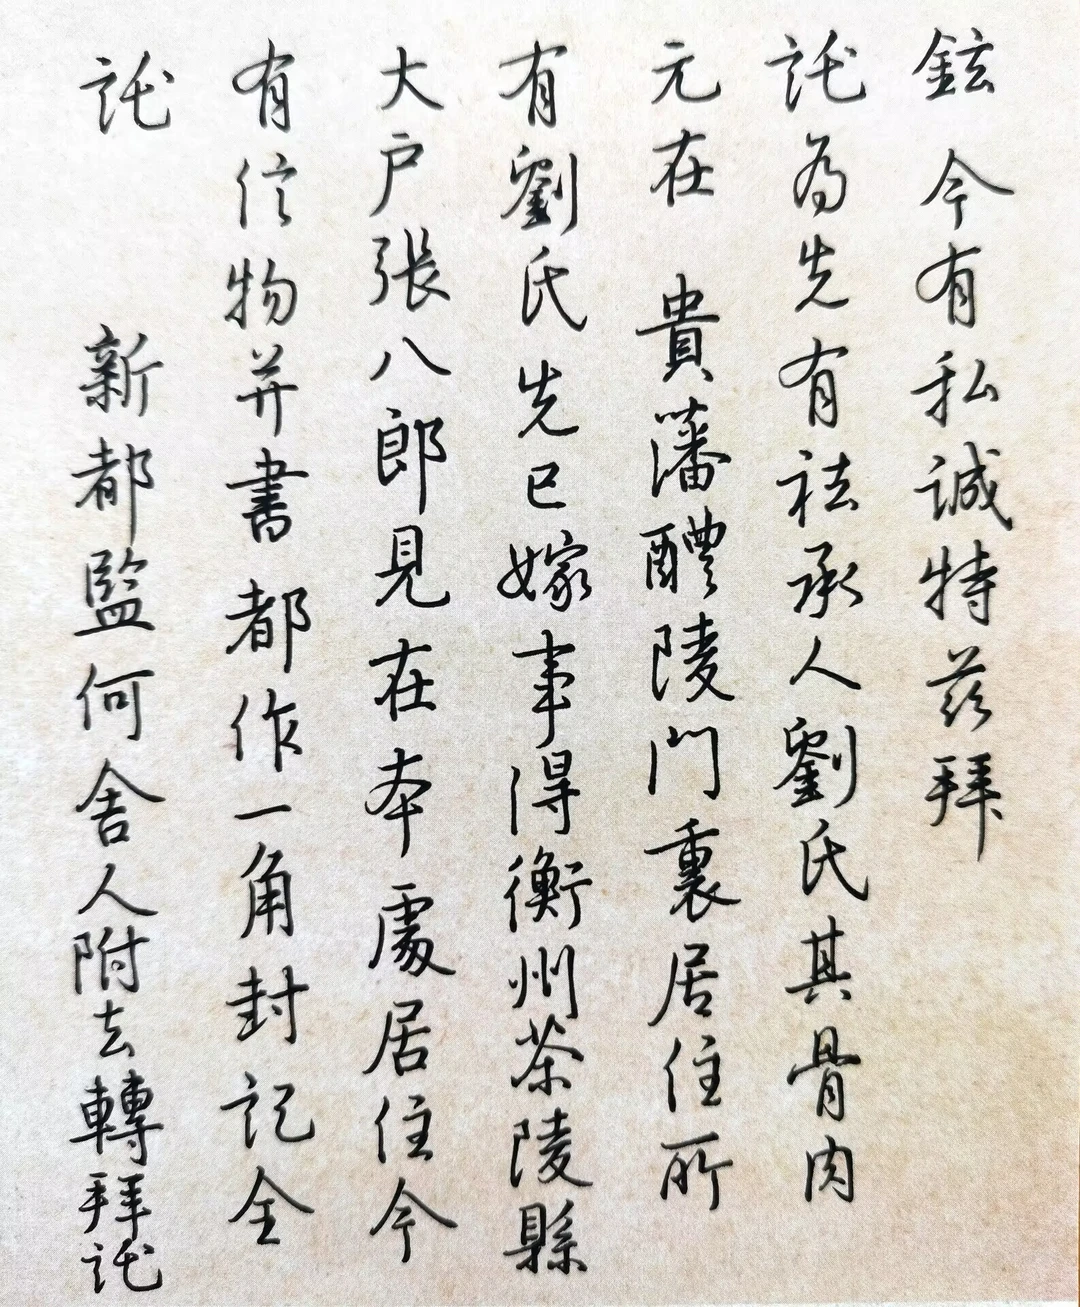 鉉今有私誠特茲拜
託為先有祛承人劉氏其骨肉
元在貴藩醴陵門裏居住所
有劉氏先已嫁事得衡州茶陵縣
大户張八郎見在本處居住今
有信物并書都作一角封記全
託新都監何舍人附去轉拜託